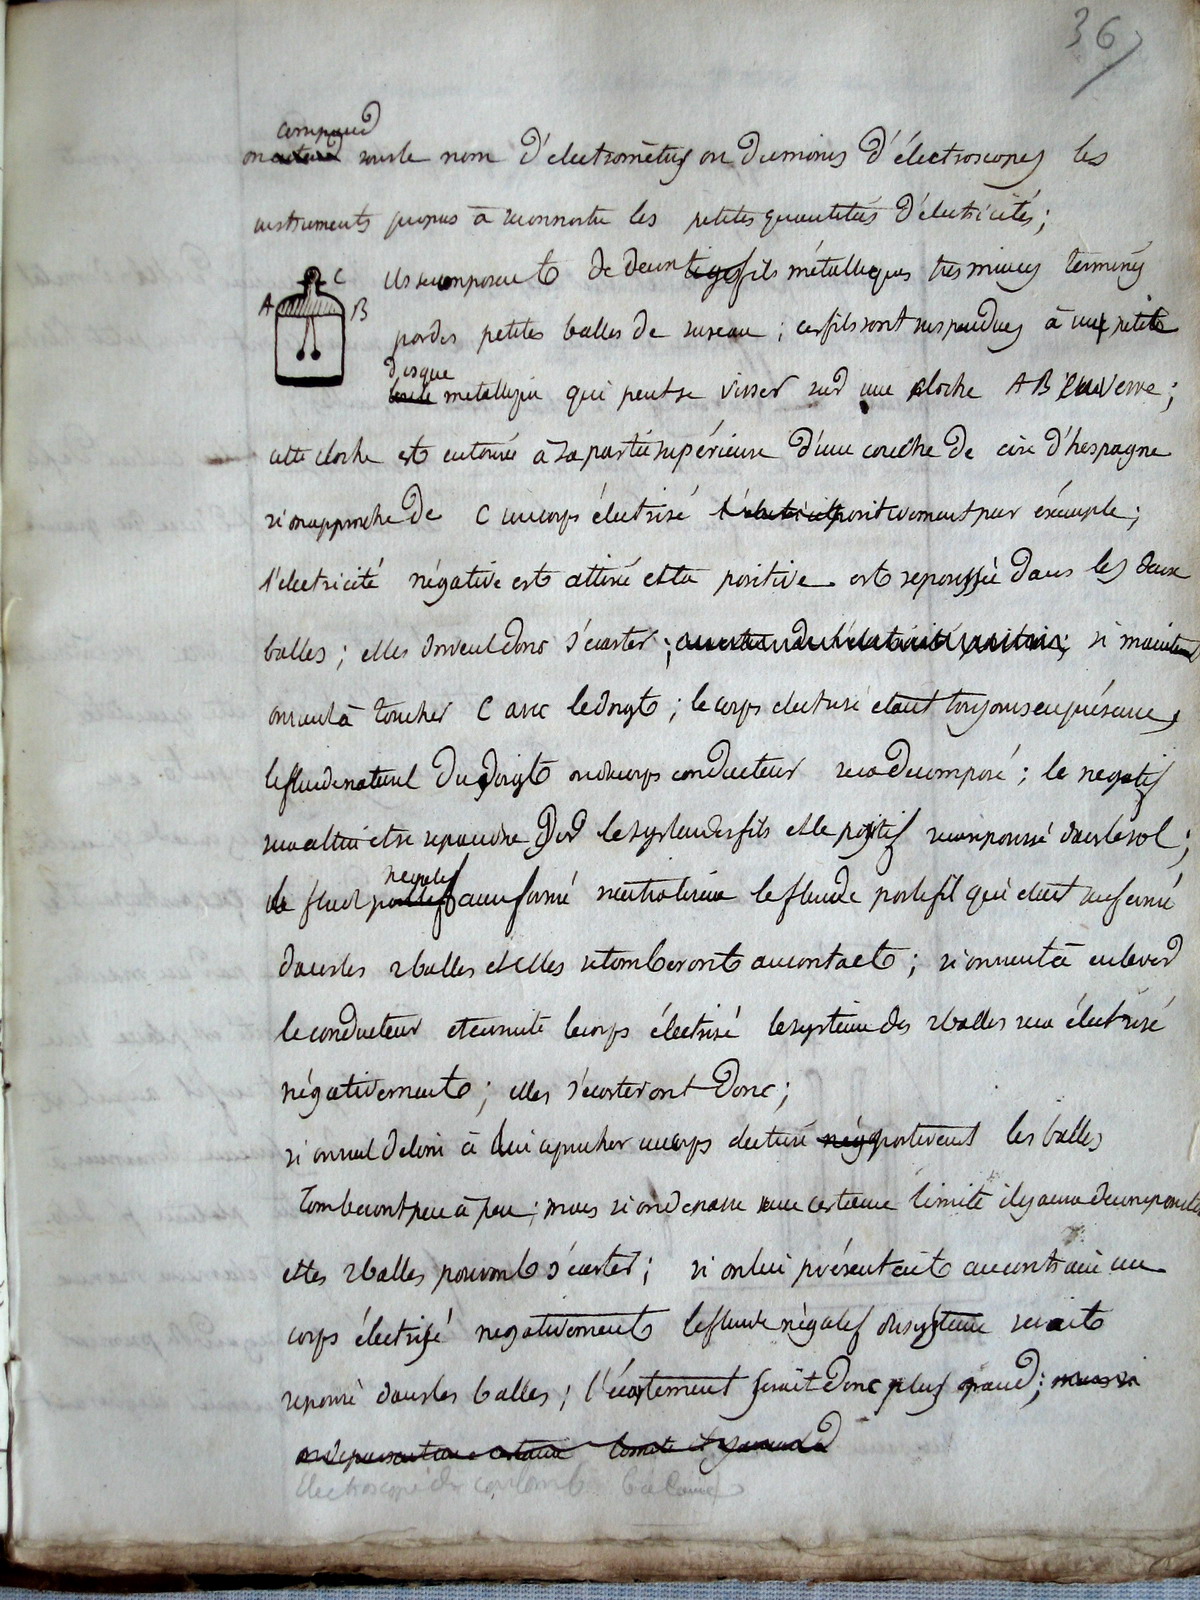 36
comprend
on entend sous le nom d'électromètres ou du moins d'électroscopes les
instruments propres à reconnoitre les petites quantités d'électricités;
C
A B
ils se composent de deux tiges fils métalliques très minces terminés
par des petites balles de sureau; ces fils sont suspendus à une petite
disque
boule metallique qui peut se visser sur une cloche AB en verre;
cette cloche est entourée à sa partie supérieure d'une couche de cire d'hespagne
si on approche de C un corps électrisé l'électricité positivement par éxemple;
l'electricité négative est attirée et la positive est repoussée dans les deux
balles; elles doivent donc s'écarter; si mainten
on vient à toucher C avec le doigt; le corps electrisé etant toujours en présence,
le fluide naturel du doigt ou du corps conducteur sera decomposé; le negatif
sera attiré et se repandra sur le systeme des fils et le positif sera repoussé dans le sol;
negatif
le fluide positif ainsi formé neutralisera le fluide positif qui etait renfermé
dans les 2 balles et elles retomberont au contact; si on vient à enlever
le conducteur et ensuite le corps électrisé le système des 2 balles sera électrisé
négativement; elles s'écarteront donc;
si on vient de loin à lui approcher un corps electrisé nég positivement les balles
tomberont peu à peu; mais si on depasse une certaine limite il y aura decomposition
et les 2 balles pourront s'écarter; si on lui présentait au contraire un
corps électrisé negativement le fluide négatif du système serait
repoussé dans les balles; l'écartement serait donc plus grand; mais si
on depassait une certaine limite il y aurait
Electroscope de coulomb balance